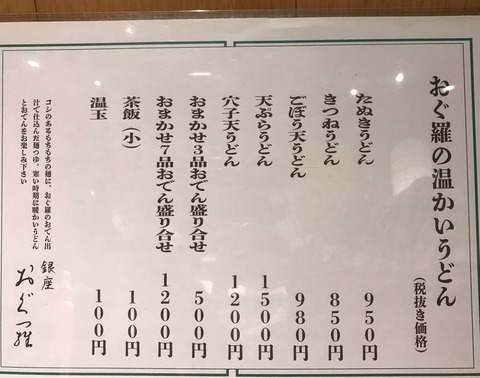 おぐ羅の温かいうどん
(税抜き価格)
たぬきうどん 950円
きつねうどん 850円
ごぼう天うどん 980円
天ぷらうどん 1500円
穴子天うどん 1200円
おまかせ3品おでん盛り合せ 500円
おまかせ7品おでん盛り合せ 1200円
茶飯(小) 100円
温玉 100円
コシのあるもちもちの麺に、おぐ羅のおでん出
汁で仕込んだ麺つゆ。寒い時期に暖かいうどん
とおでんをお楽しみ下さい
銀座
おぐ羅